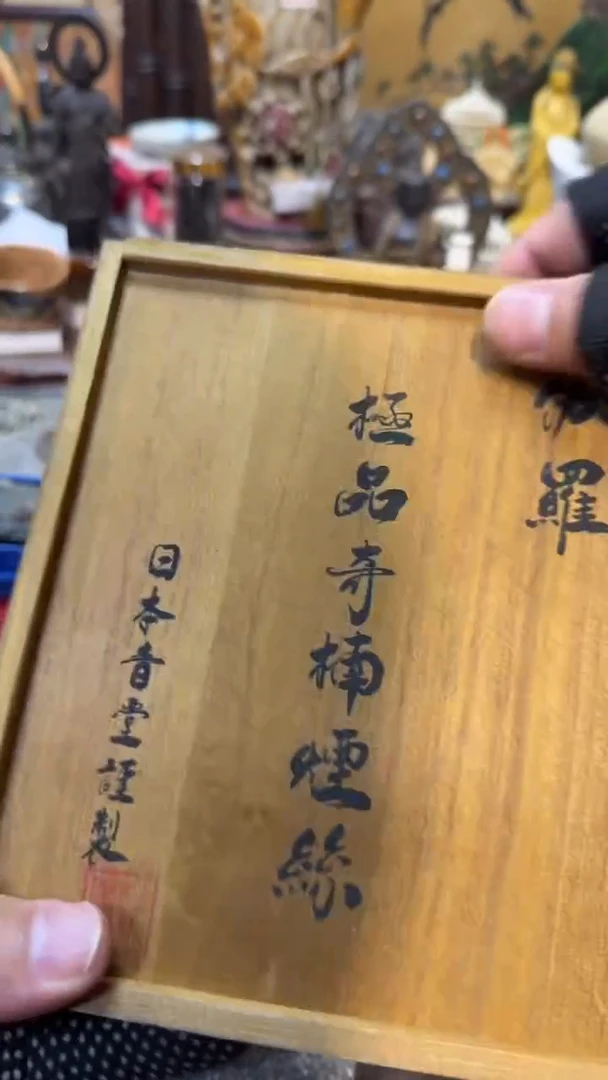 羅
極品奇楠煙絲
日本香堂謹製